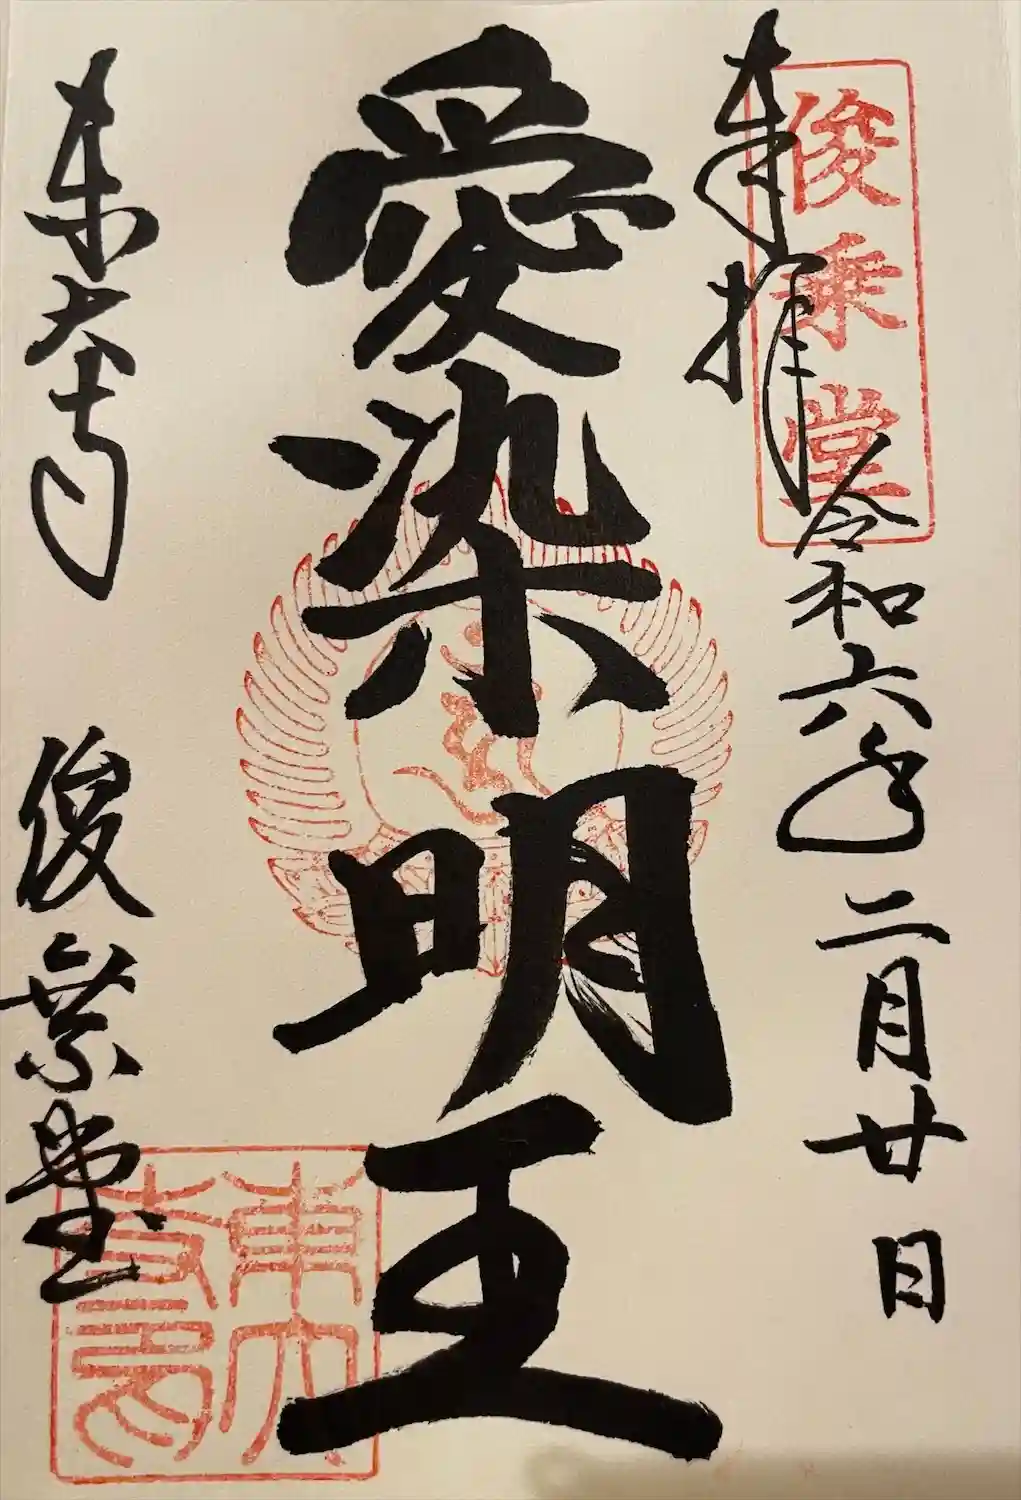 俊乗堂
奉拝
令和六年二月廿日
愛染明王
東大寺
俊乗堂
東大寺印